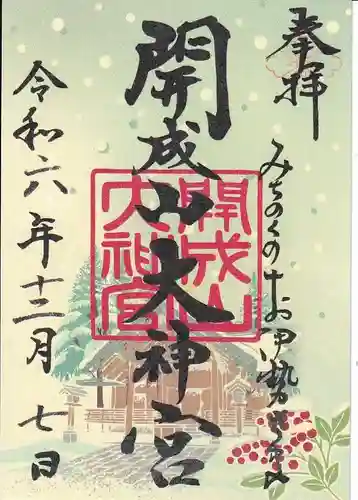 奉拝
みちのくのお伊勢
開成山大神宮
開成山
大神宮
令和六年十二月七日